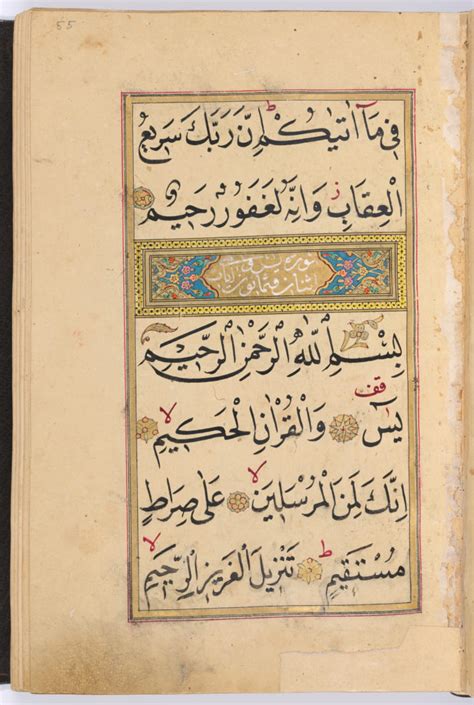 55
فِى مَآ اٰتٰيكُمْ ط اِنَّ رَبَّكَ سَرِيعُ
الْعِقَابِ ز وَاِنَّهُ لَغَفُورٌ رَحِيمٌ
سورة يس
ثمانون
بِسْمِ اللّٰهِ الرَّحْمٰنِ الرَّحِيمِ
يٰسٓ قف وَالْقُرْاٰنِ الْحَكِيمِ لا
اِنَّكَ لَمِنَ الْمُرْسَلِينَ لا عَلٰى صِرَاطٍ
مُسْتَقِيمٍ ط تَنْزِيلَ الْعَزِيزِ الرَّحِيمِ لا